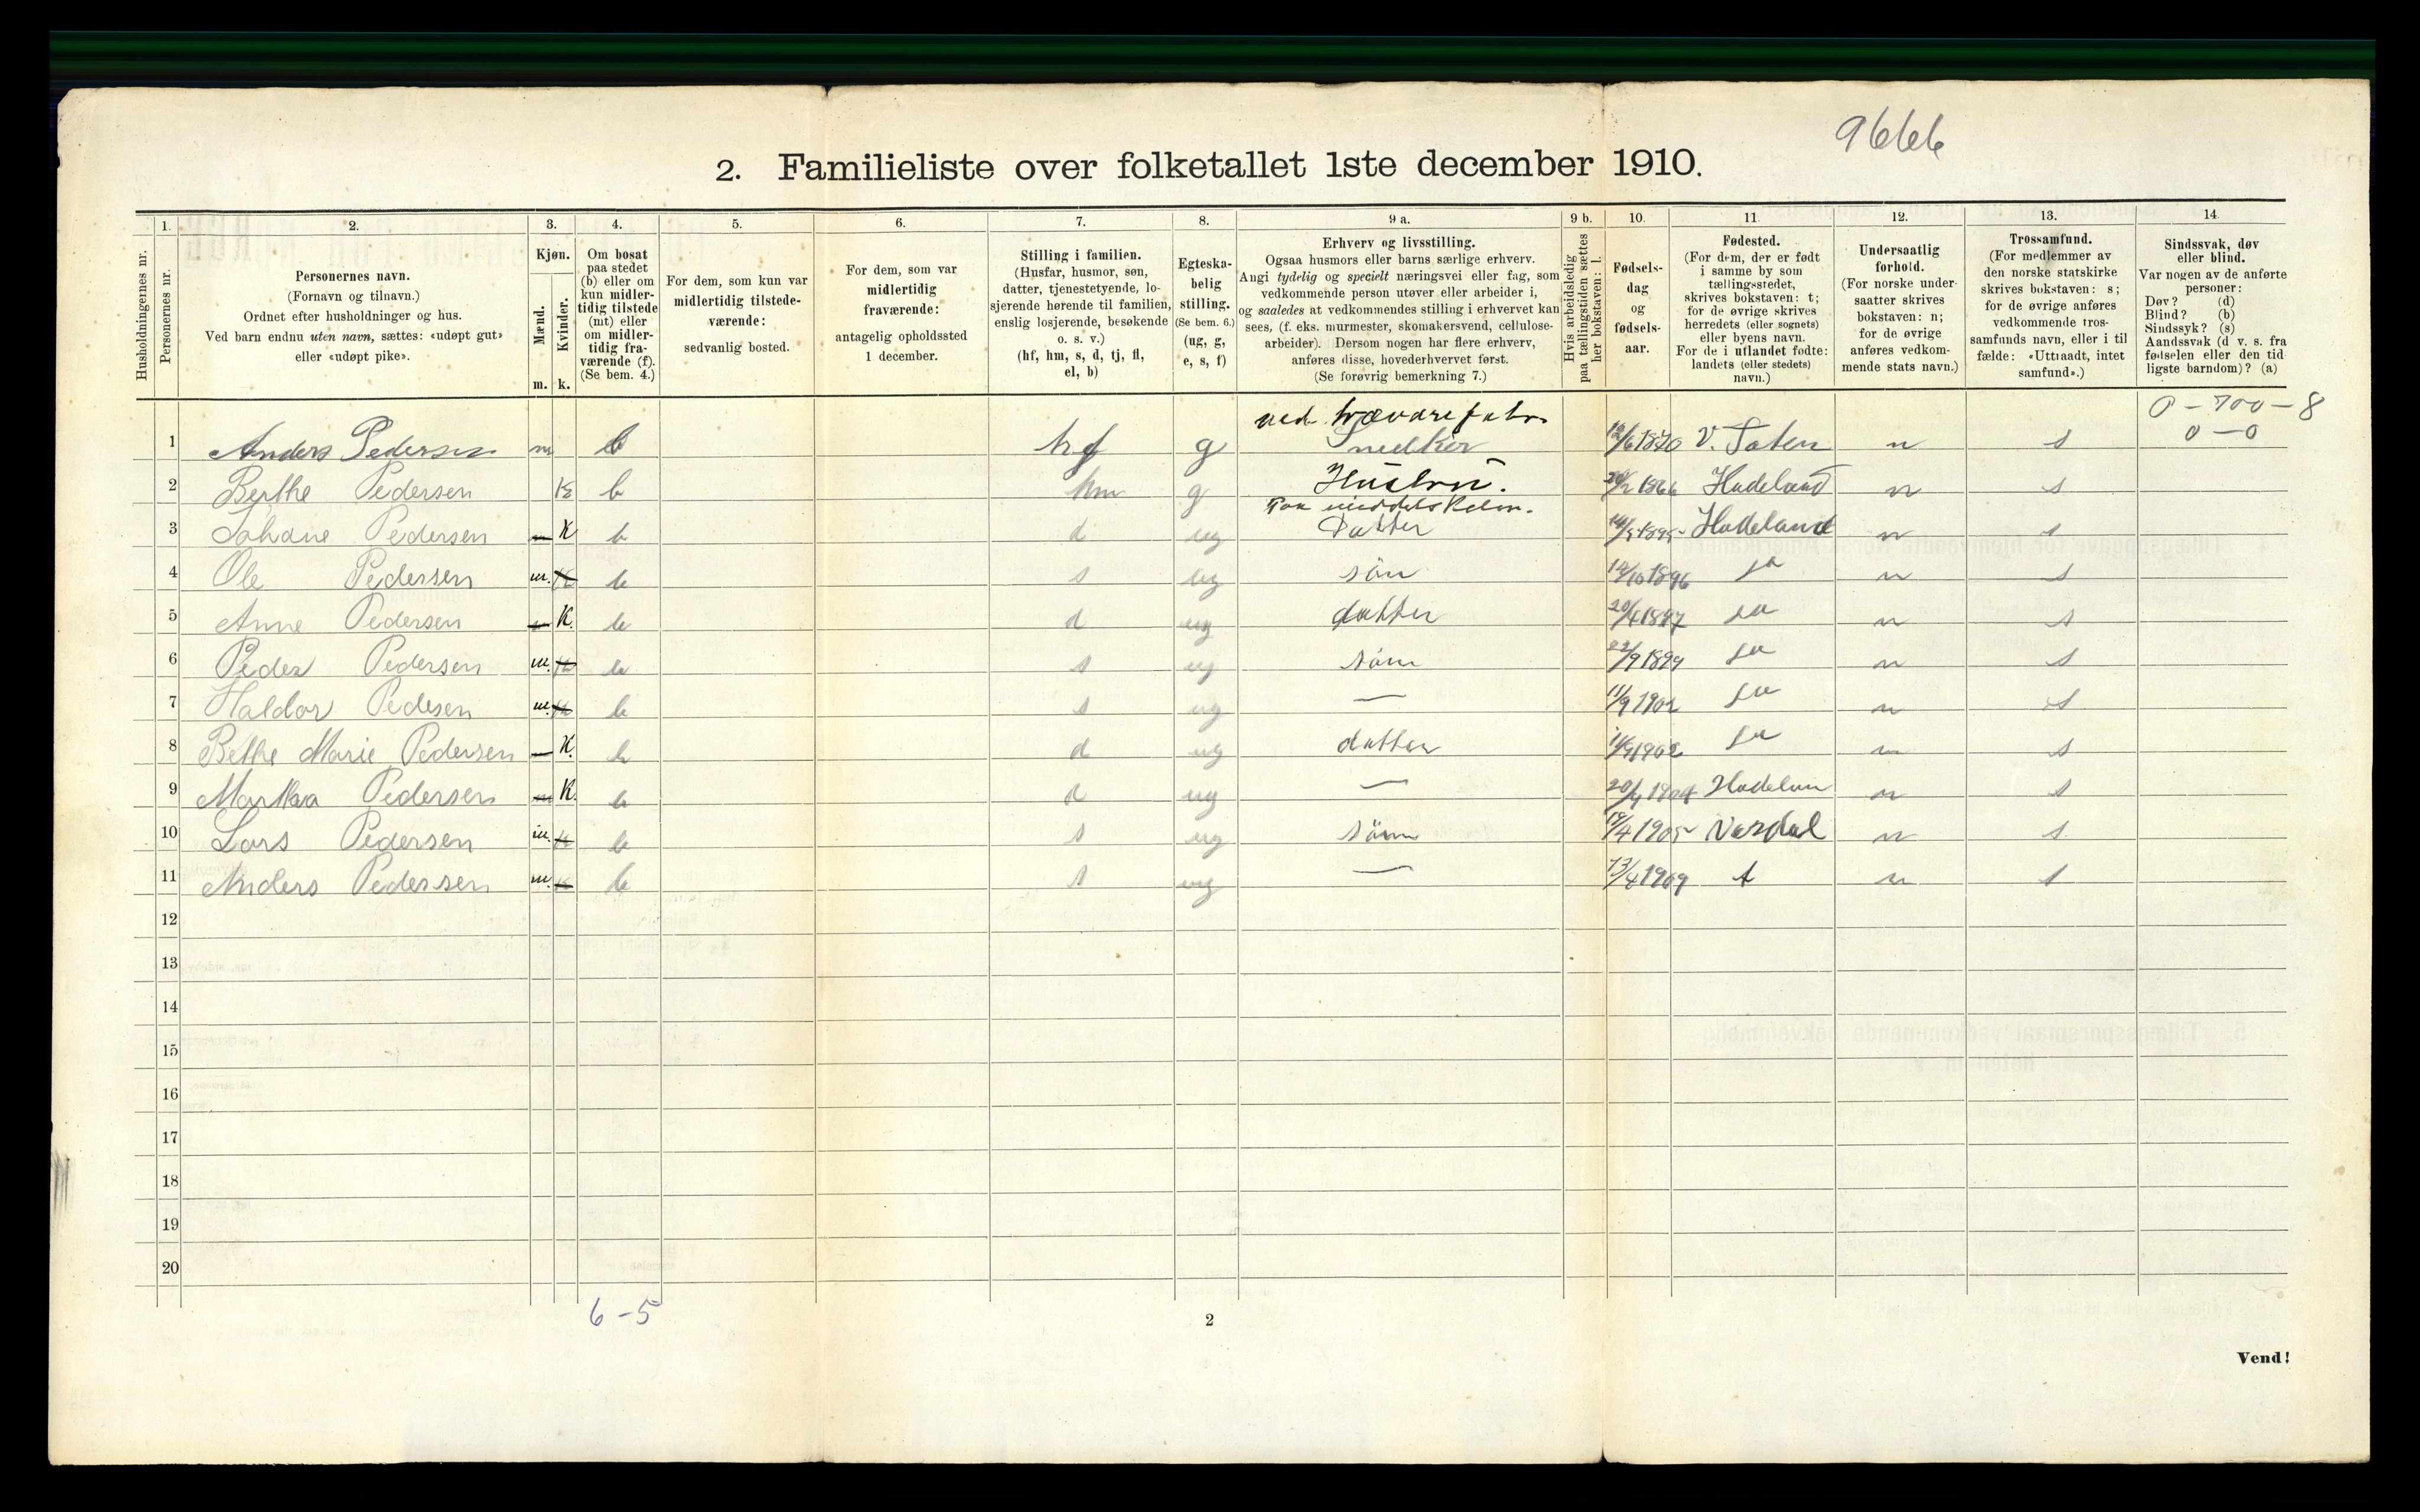 9666
2. Familieliste over folketallet 1ste december 1910.
1. 2. 3. 4. 5. 6. 7. 8. 9 a. 9 b. 10. 11. 12. 13. 14.
Husholdningernes nr.
Personernes nr.
Personernes navn.
(Fornavn og tilnavn.)
Ordnet efter husholdninger og hus.
Ved barn endnu uten navn, sættes: «udøpt gut»
eller «udøpt pike».
Kjøn.
Mænd.
Kvinder.
m. k.
Om bosat
paa stedet
(b) eller om
kun midler-
tidig tilstede
(mt) eller
om midler-
tidig fra-
værende (f).
(Se bem. 4.)
For dem, som kun var
midlertidig tilstede-
værende:
sedvanlig bosted.
For dem, som var
midlertidig
fraværende:
antagelig opholdssted
1 december.
Stilling i familien.
(Husfar, husmor, søn,
datter, tjenestetyende, lo-
sjerende hørende til familien,
enslig losjerende, besøkende
o. s. v.)
(hf, hm, s, d, tj, fl,
el, b)
Egteska-
belig
stilling.
(Se bem. 6.)
(ug, g,
e, s, f)
Erhverv og livsstilling.
Ogsaa husmors eller barns særlige erhverv.
Angi tydelig og specielt næringsvei eller fag, som
vedkommende person utøver eller arbeider i,
og saaledes at vedkommendes stilling i erhvervet kan
sees, (f. eks. murmester, skomakersvend, cellulose-
arbeider). Dersom nogen har flere erhverv,
anføres disse, hovederhvervet først.
(Se forøvrig bemerkning 7.)
Hvis arbeidsledig
paa tællingstiden sættes
her bokstaven: l.
Fødsels-
dag
og
fødsels-
aar.
Fødested.
(For dem, der er født
i samme by som
tællingsstedet,
skrives bokstaven: t;
for de øvrige skrives
herredets (eller sognets)
eller byens navn.
For de i utlandet fødte:
landets (eller stedets)
navn.)
Undersaatlig
forhold.
(For norske under-
saatter skrives
bokstaven: n;
for de øvrige
anføres vedkom-
mende stats navn.)
Trossamfund.
(For medlemmer av
den norske statskirke
skrives bokstaven: s;
for de øvrige anføres
vedkommende tros-
samfunds navn, eller i til
fælde: «Uttraadt, intet
samfund».)
Sindssvak, døv
eller blind.
Var nogen av de anførte
personer:
Døv? (d)
Blind? (b)
Sindssyk? (s)
Aandssvak (d v. s. fra
fødselen eller den tid
ligste barndom)? (a)
0-700-8
0-0
ved trævarefabr.
1 Anders Pedersen m b hf g Snedker 12/6 1870 V. Toten n s
2 Berthe Pedersen k b hm g Hustru. 1866 Hadeland n s
3 Johane Pedersen K b d ug Datter Hadeland n s
4 Ole Pedersen m. b s ug sön 12/10 1896 n s
5 Anne Pedersen K. b d ug datter n s
6 Peder Pedersen m. b s ug sönn 22/9 1899 n s
7 Haldor Pedesen m. b s ug — n s
8 Bethe Marie Pedersen K. b d ug datter n s
9 Martha Pedersen K. b d ug — 20/4 1904 n s
10 Lars Pedersen m. b s ug sönn 19/4 1905 Verdal n s
11 Anders Pedersen m. b s ug — 13/4 1909 t n s
12
13
14
15
16
17
18
19
20
6-5
2
Vend!